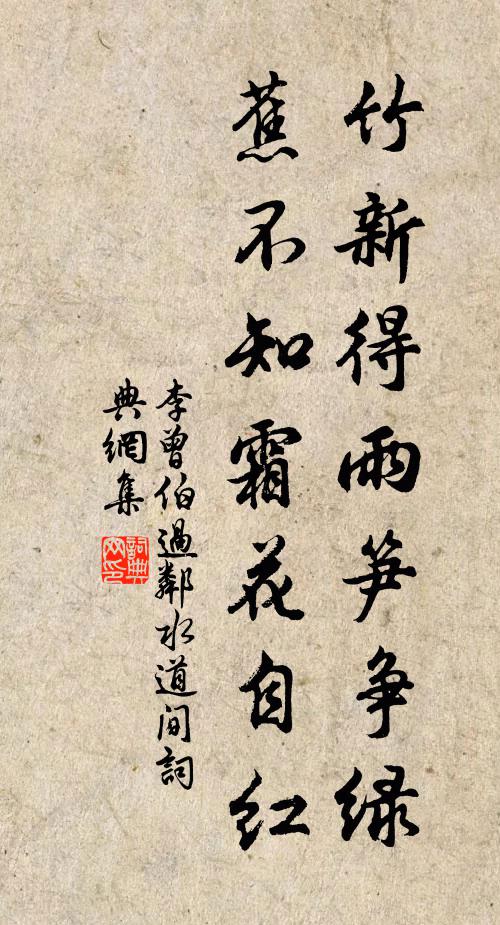 竹新得雨笋争绿
蕉不知霜花自红
李曾伯過鄰水道間詞
典網集
詞典
网印